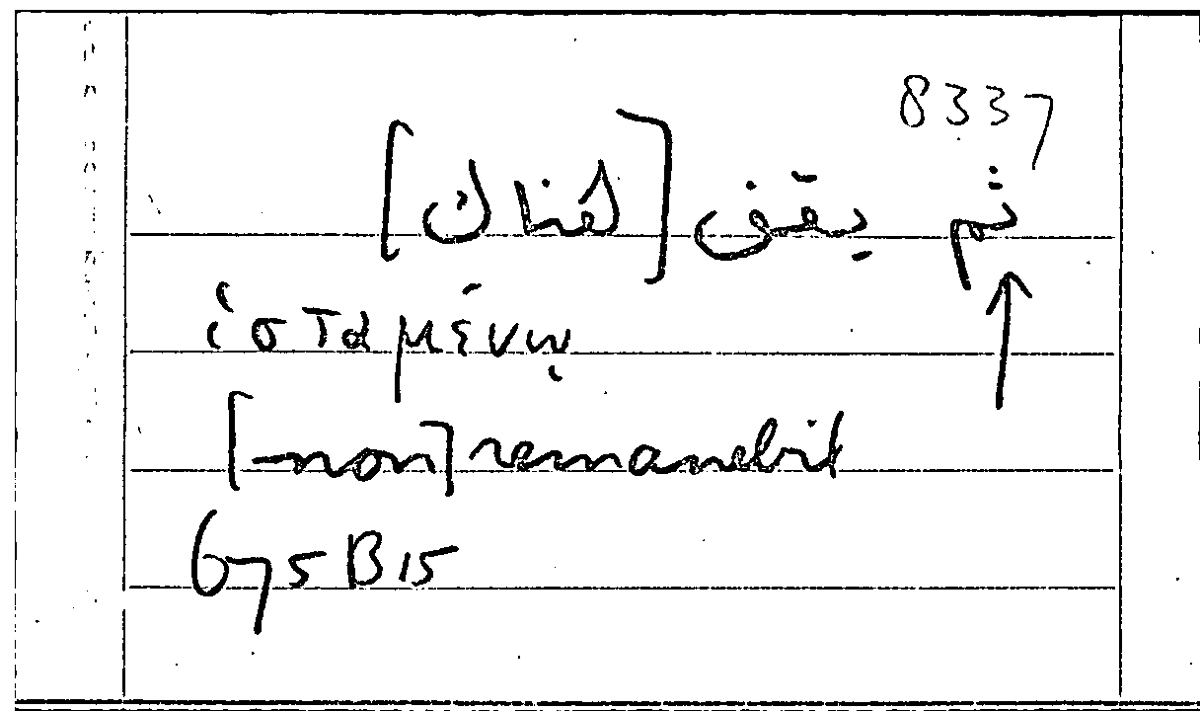 8337
ثم يقف [هناك]
↑
ἱσταμένῳ
[-non] remanebit
675 B 15